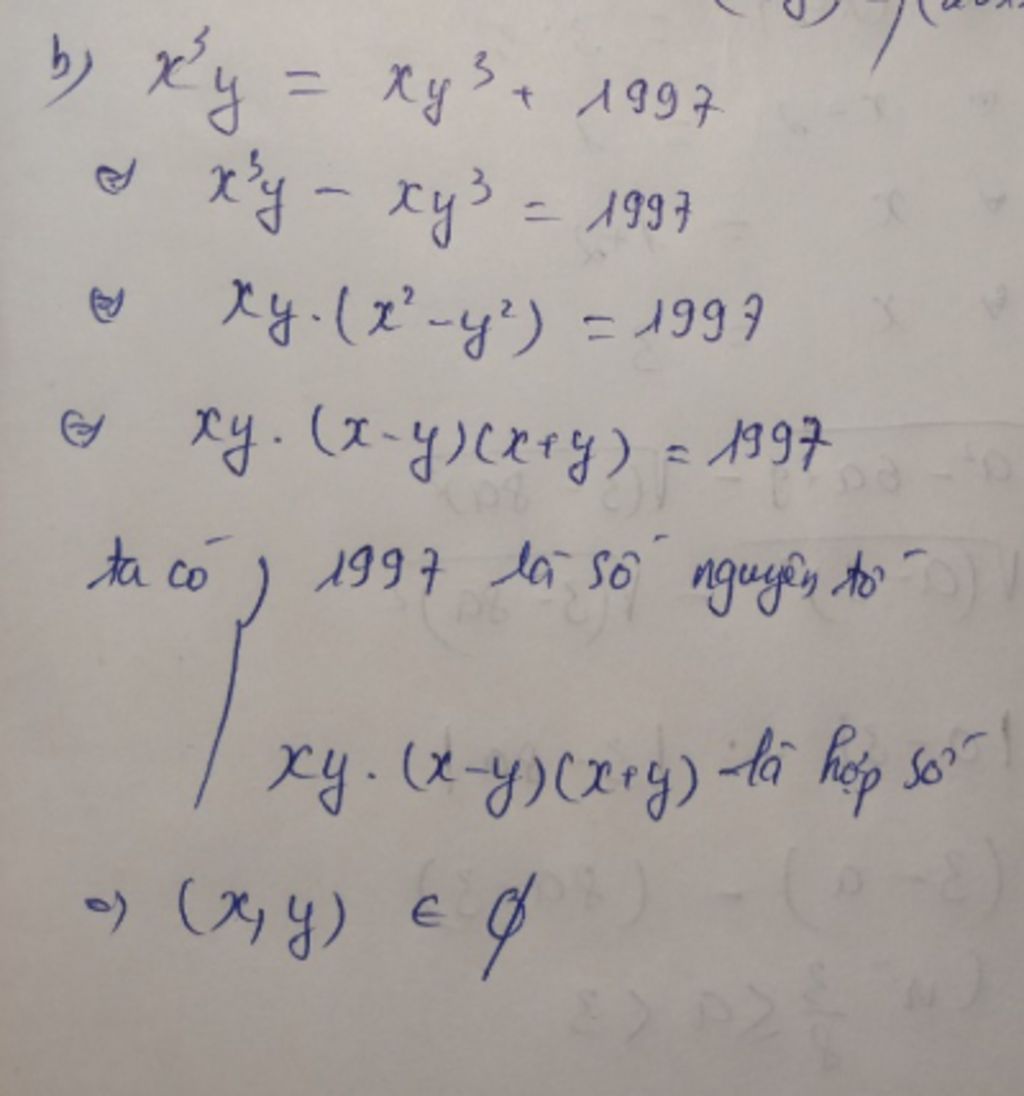 b) x³y = xy³ + 1997
⇔ x³y - xy³ = 1997
⇔ xy.(x²-y²) = 1997
⇔ xy.(x-y)(x+y) = 1997
ta có, 1997 là số nguyên tố
xy.(x-y)(x+y) là hợp số
=> (x,y) ∈ ∅